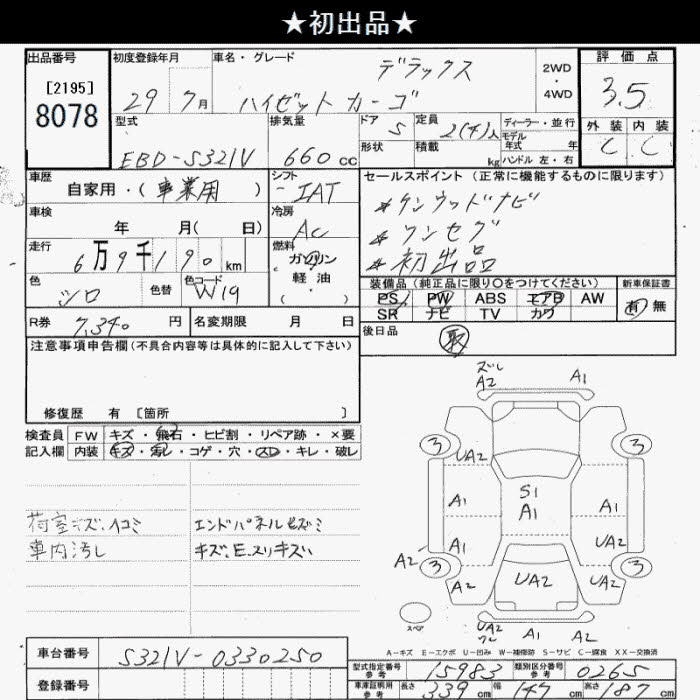 ★初出品★
出品番号 初度登録年月 車名・グレード 評価点
[2195]
8078
29年 7月 デラックス 2WD・4WD 3.5
ハイゼットカーゴ
外装 内装
C C
型式 排気量 ドア 5 定員 2(4)人 ディーラー・並行
モデル年式 年
EBD-S321V 660cc 形状 積載 kg ハンドル 左・右
車歴 自家用・(事業用) シフト IAT
セールスポイント(正常に機能するものに限ります)
車検 年 月( 日) 冷房 AC
*ケンウッドナビ
*ワンセグ
*初出品
走行 6万9千190km 燃料 ガソリン
軽油
・( )
色 シロ 色替 色コード W19
装備品(純正品に限り○をつけてください) 新車保証書
PS PW ABS エアB AW 有 無
SR ナビ TV カワ
R券 7,340円 名変期限 月 日 後日品 取
注意事項申告欄(不具合内容等は具体的に記入して下さい)
修復歴 有 [箇所 ]
検査員 FW キズ・飛石・ヒビ割・リペア跡・×要
記入欄 内装 キズ・汚レ・コゲ・穴・スレ・キレ・破レ
荷室キズ、ヘコミ エンドパネルセズミ
車内汚し キズ、E、スリキズい
ズレ
A2 A1
3 3
UA2 A2
A1 S1 A1 A1
A1 UA2
A2 3 3
A2 UA2 UA2
スペア
UA2 A1 A2
A-キズ E-エクボ U-凹み W-補修跡 S-サビ C-腐食 XX-交換済
車台番号 S321V-0330250
登録番号
型式指定番号 参考 15983 類別区分番号 参考 0265
車庫証明用 参考 長さ 339cm 幅 147cm 高さ 187cm